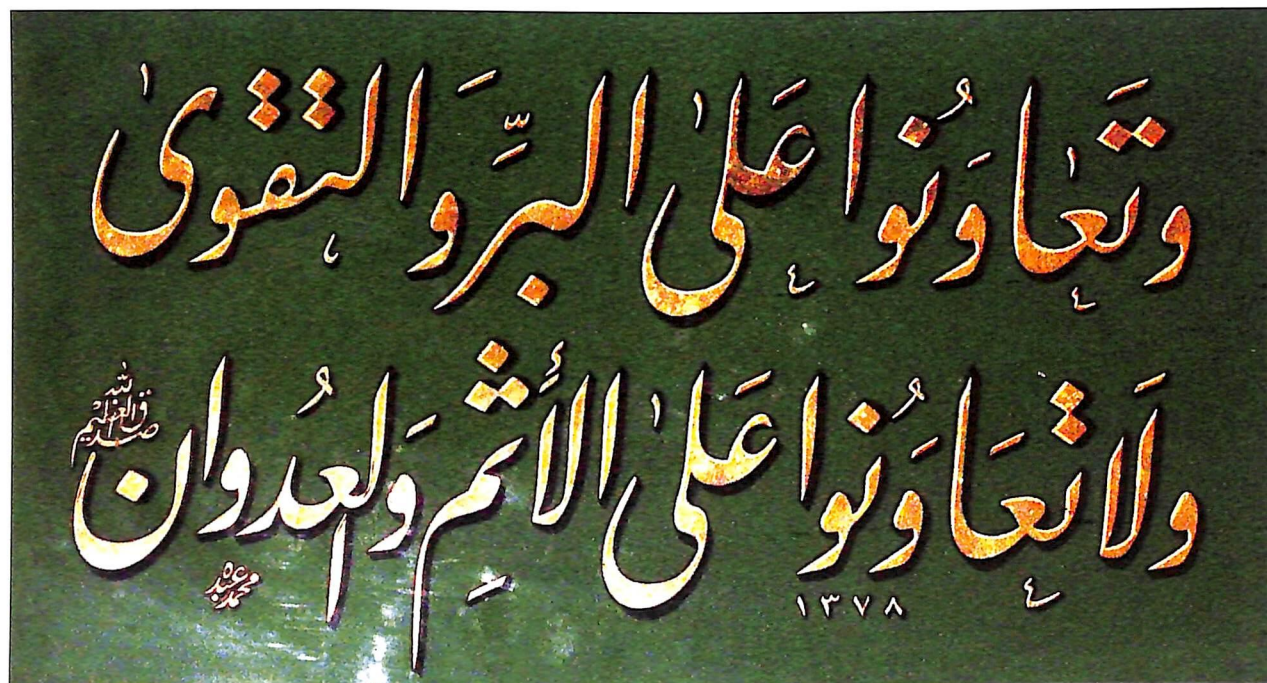 وَتَعاوَنُوا عَلىٰ البِرِّ وَالتَقوىٰ
وَلَا تَعَاوَنُوا عَلىٰ الأَثمِ وَالعُدوان
صدق الله العظيم
١٣٧٨
محمد عبده